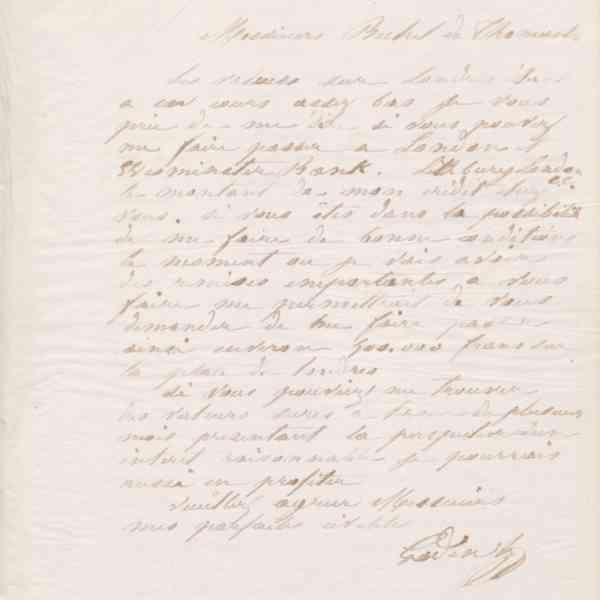 Messieurs
Les valeurs sur Londres
a un cours assez bas je vous
prie de me dire si vous pouvez
me faire passer a London &
Wesminster Bank. London
le montant de mon crédit chez
vous. si vous êtes dans la possibilité
de me faire de bonne conditions
le moment ou je vais avoir
des remises importantes a vous
faire me permettrait de vous
demander de me faire passer
ainsi environ 500.000 francs sur
la place de londres
si vous pouviez me trouver
des valeurs sures a de plusieurs
mois présentant la perspective d'un
interet raisonnable je pourrais
aussi en profiter
Veuillez agréer Messieurs
mes parfaites civilités
Godin